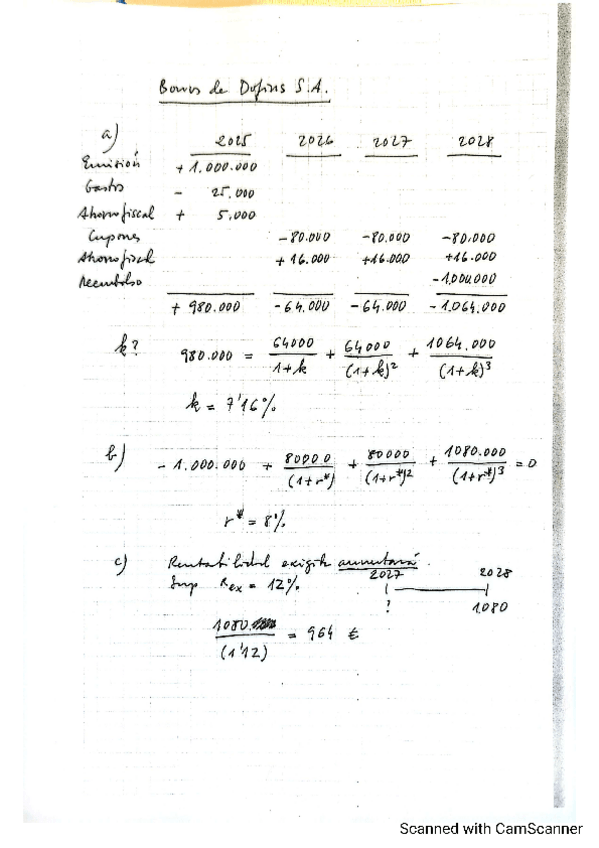 Bonos de Dofins S.A.
a) 2025 2026 2027 2028
Emisión + 1.000.000
Gastos - 25.000
Ahorro fiscal + 5.000
Cupones -80.000 -80.000 -80.000
Ahorro fiscal +16.000 +16.000 +16.000
Reembolso -1.000.000
+ 980.000 -64.000 -64.000 -1.064.000
k? 980.000 = 64000/(1+k) + 64000/(1+k)² + 1064.000/(1+k)³
k = 7'16%
b) - 1.000.000 + 80000/(1+r*) + 80000/(1+r*)² + 1080.000/(1+r*)³ = 0
r* = 8%
c) Rentabilidad exigida aumentará.
Sup Rex = 12% 2027 2028
? 1080
1080/(1'12) = 964 €
Scanned with CamScanner